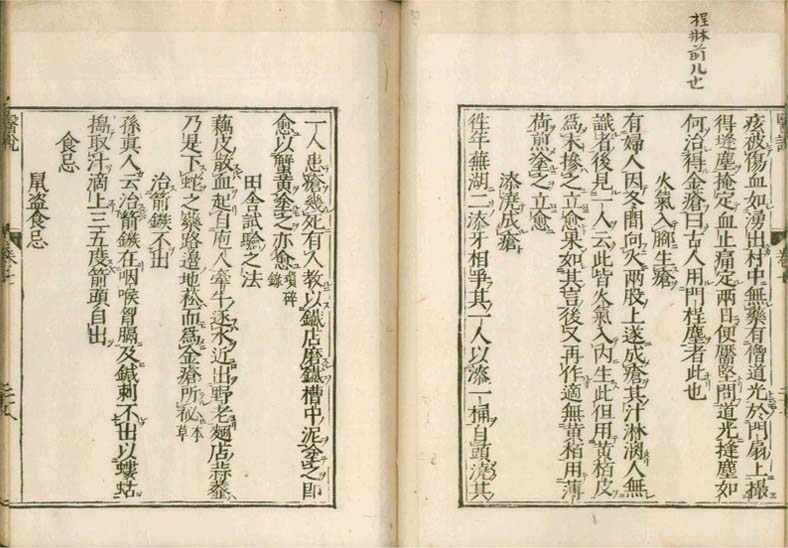 桯牀前几也
被傷血如湧出村中無藥有僧道光於門扇上撮
得塵掩定血止痛定兩日便靨堅問道光塵如
何治得金瘡曰古人用門桯塵者此也
火氣入脚生瘡
有婦人因冬間向火兩股上遂成瘡其汁淋漓人無
識者後見一人云此皆火氣入內生此但用黃栢皮
為末摻之立愈果如其言後又再作適無黃栢用薄
荷煎塗之立愈
漆澆成瘡
徃年蕪湖二漆牙相爭其一人以漆一桶自頭澆其
醫說
卷七
一人患瘡幾死有人教以鐵店磨鐵槽中泥塗之即
愈以蟹黃塗之亦愈瑣碎錄
田舍試驗之法
藕皮散血起自庖人牽牛逐水近出野老麵店蒜虀
乃是下蛇之藥路邊地菘而為金瘡所祕本草
治箭鏃不出
孫真人云治箭鏃在咽喉胷膈及鍼刺不出以螻蛄
搗取汁滴上三五度箭頭自出
食忌
鼠盜食忌
醫說
卷七